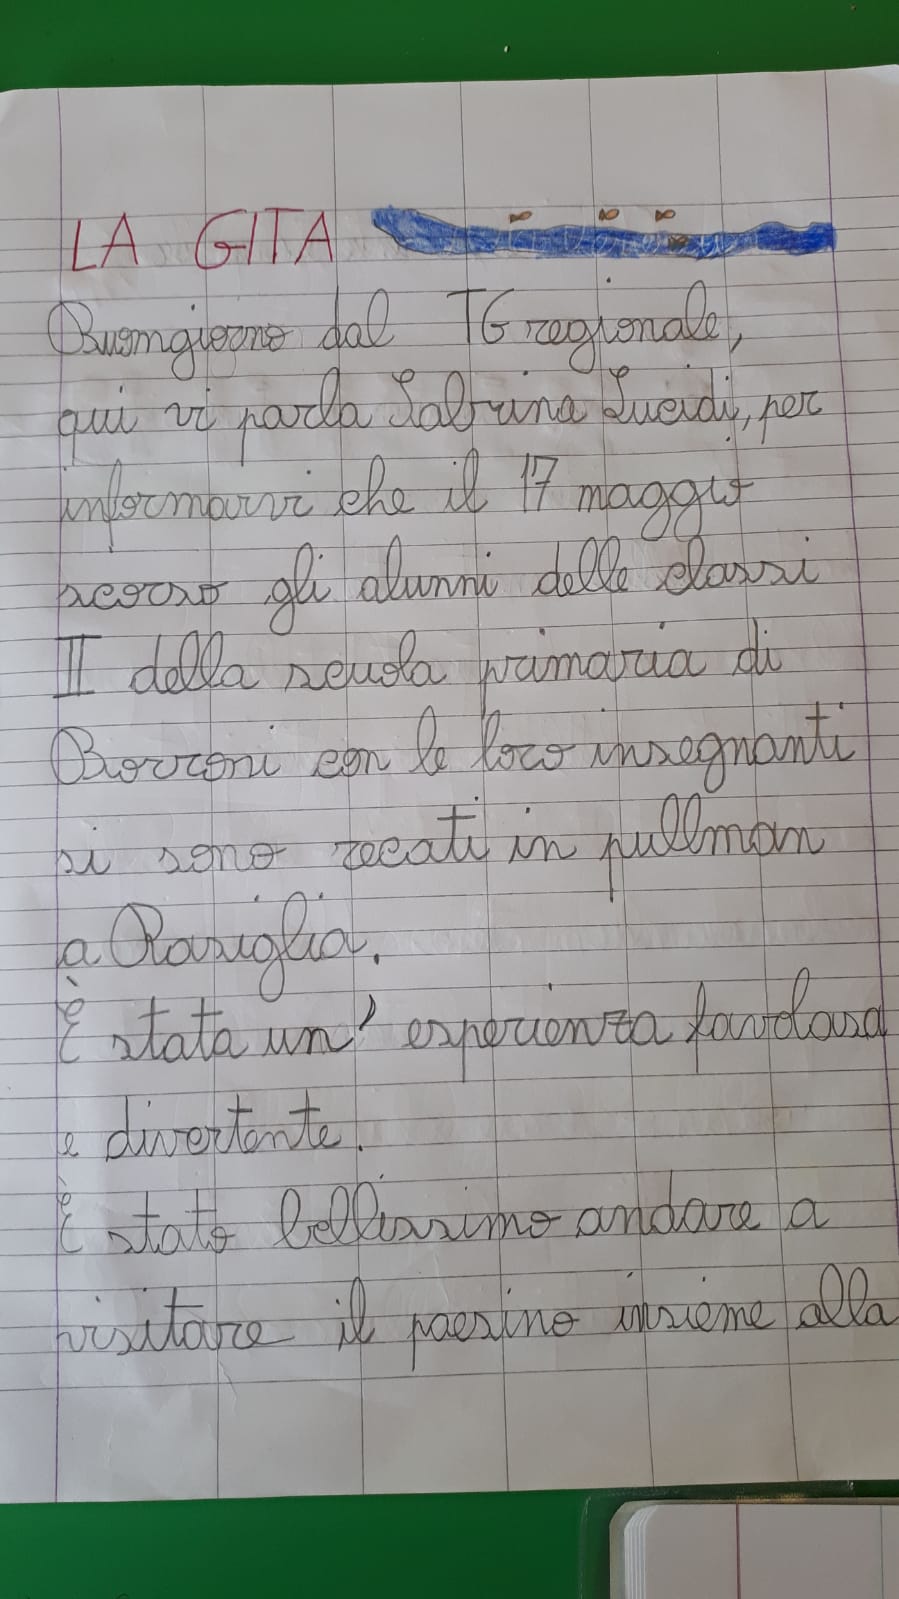 LA GITA
Buongiorno dal TG regionale,
qui vi parla Sabrina Lucidi, per
informarvi che il 17 maggio
scorso gli alunni delle classi
II della scuola primaria di
Borroni con le loro insegnanti
si sono recati in pullman
a Rasiglia.
È stata un' esperienza favolosa
e divertente.
È stato bellissimo andare a
visitare il paesino insieme alla